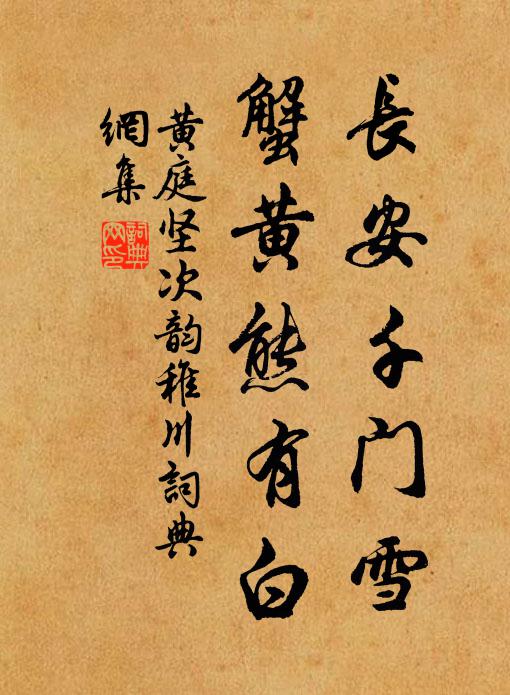 長安千门雪
蟹黄熊有白
黄庭坚次韵稚川詞典
網集
詞典網印